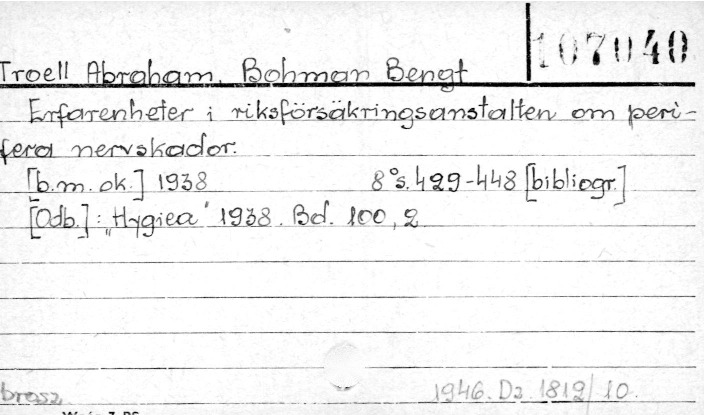 107040
Troell Abraham, Bohman Bengt
Erfarenheter i riksförsäkringsanstalten om peri-
fera nervskador.
[b.m. ok.] 1938 8° s. 429-448 [bibliogr.]
[Odb.]: „Hygiea" 1938. Bd. 100, 2
brosz. 1946. Dz. 1812/10.